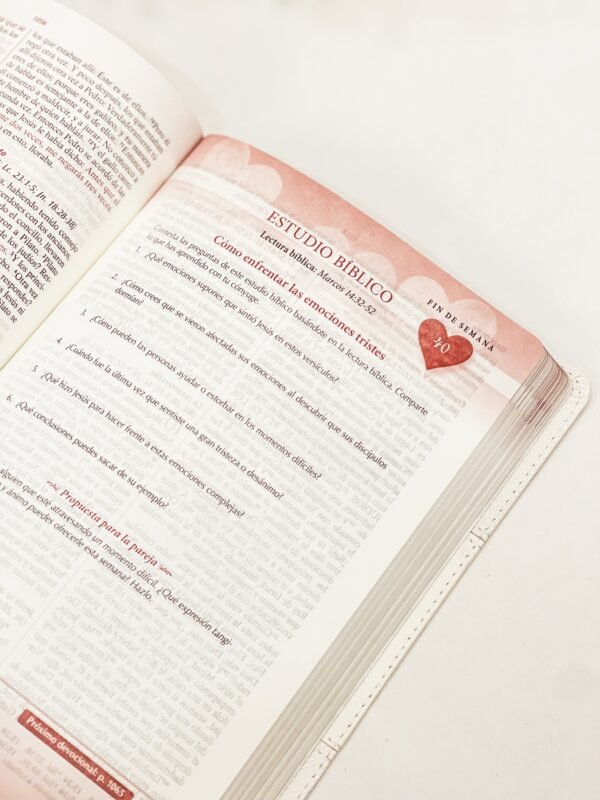 los que estaban allí: Éste es de ellos. Pero él
negó otra vez. Y poco después, los que estaban
allí dijeron otra vez a Pedro: Verdaderamente tú
eres de ellos; porque eres galileo, y tu manera
de hablar es semejante a la de ellos. Entonces
él comenzó a maldecir, y a jurar: No conozco a
hombre de quien habláis. Y el gallo cantó
segunda vez. Entonces Pedro se acordó de las
que Jesús le había dicho: Antes que el
dos veces, me negarás tres veces.
en esto, lloraba.
Lc. 23:1-5; Jn. 18:28-38)
habiendo tenido consejo
con los ancianos,
el concilio, llevaron
a Pilato. Pilato
de los judíos? Res-
Y los princi-
Otra vez
Jesús ni
Pilato se
ESTUDIO BÍBLICO
Lectura bíblica: Marcos 14:32-52
FIN DE SEMANA
40
Cómo enfrentar las emociones tristes
Contesta las preguntas de este estudio bíblico basándote en la lectura bíblica. Comparte
lo que has aprendido con tu cónyuge.
1. ¿Qué emociones supones que sintió Jesús en estos versículos?
2. ¿Cómo crees que se vieron afectadas sus emociones al descubrir que sus discípulos
dormían?
3. ¿Cómo pueden las personas ayudar o estorbar en los momentos difíciles?
4. ¿Cuándo fue la última vez que sentiste una gran tristeza o desánimo?
5. ¿Qué hizo Jesús para hacer frente a estas emociones complejas?
6. ¿Qué conclusiones puedes sacar de su ejemplo?
Propuesta para la pareja
alguien que esté atravesando un momento difícil. ¿Qué expresión tangi-
y ánimo puedes ofrecerle esta semana? Hazlo.
Próximo devocional: p. 1065